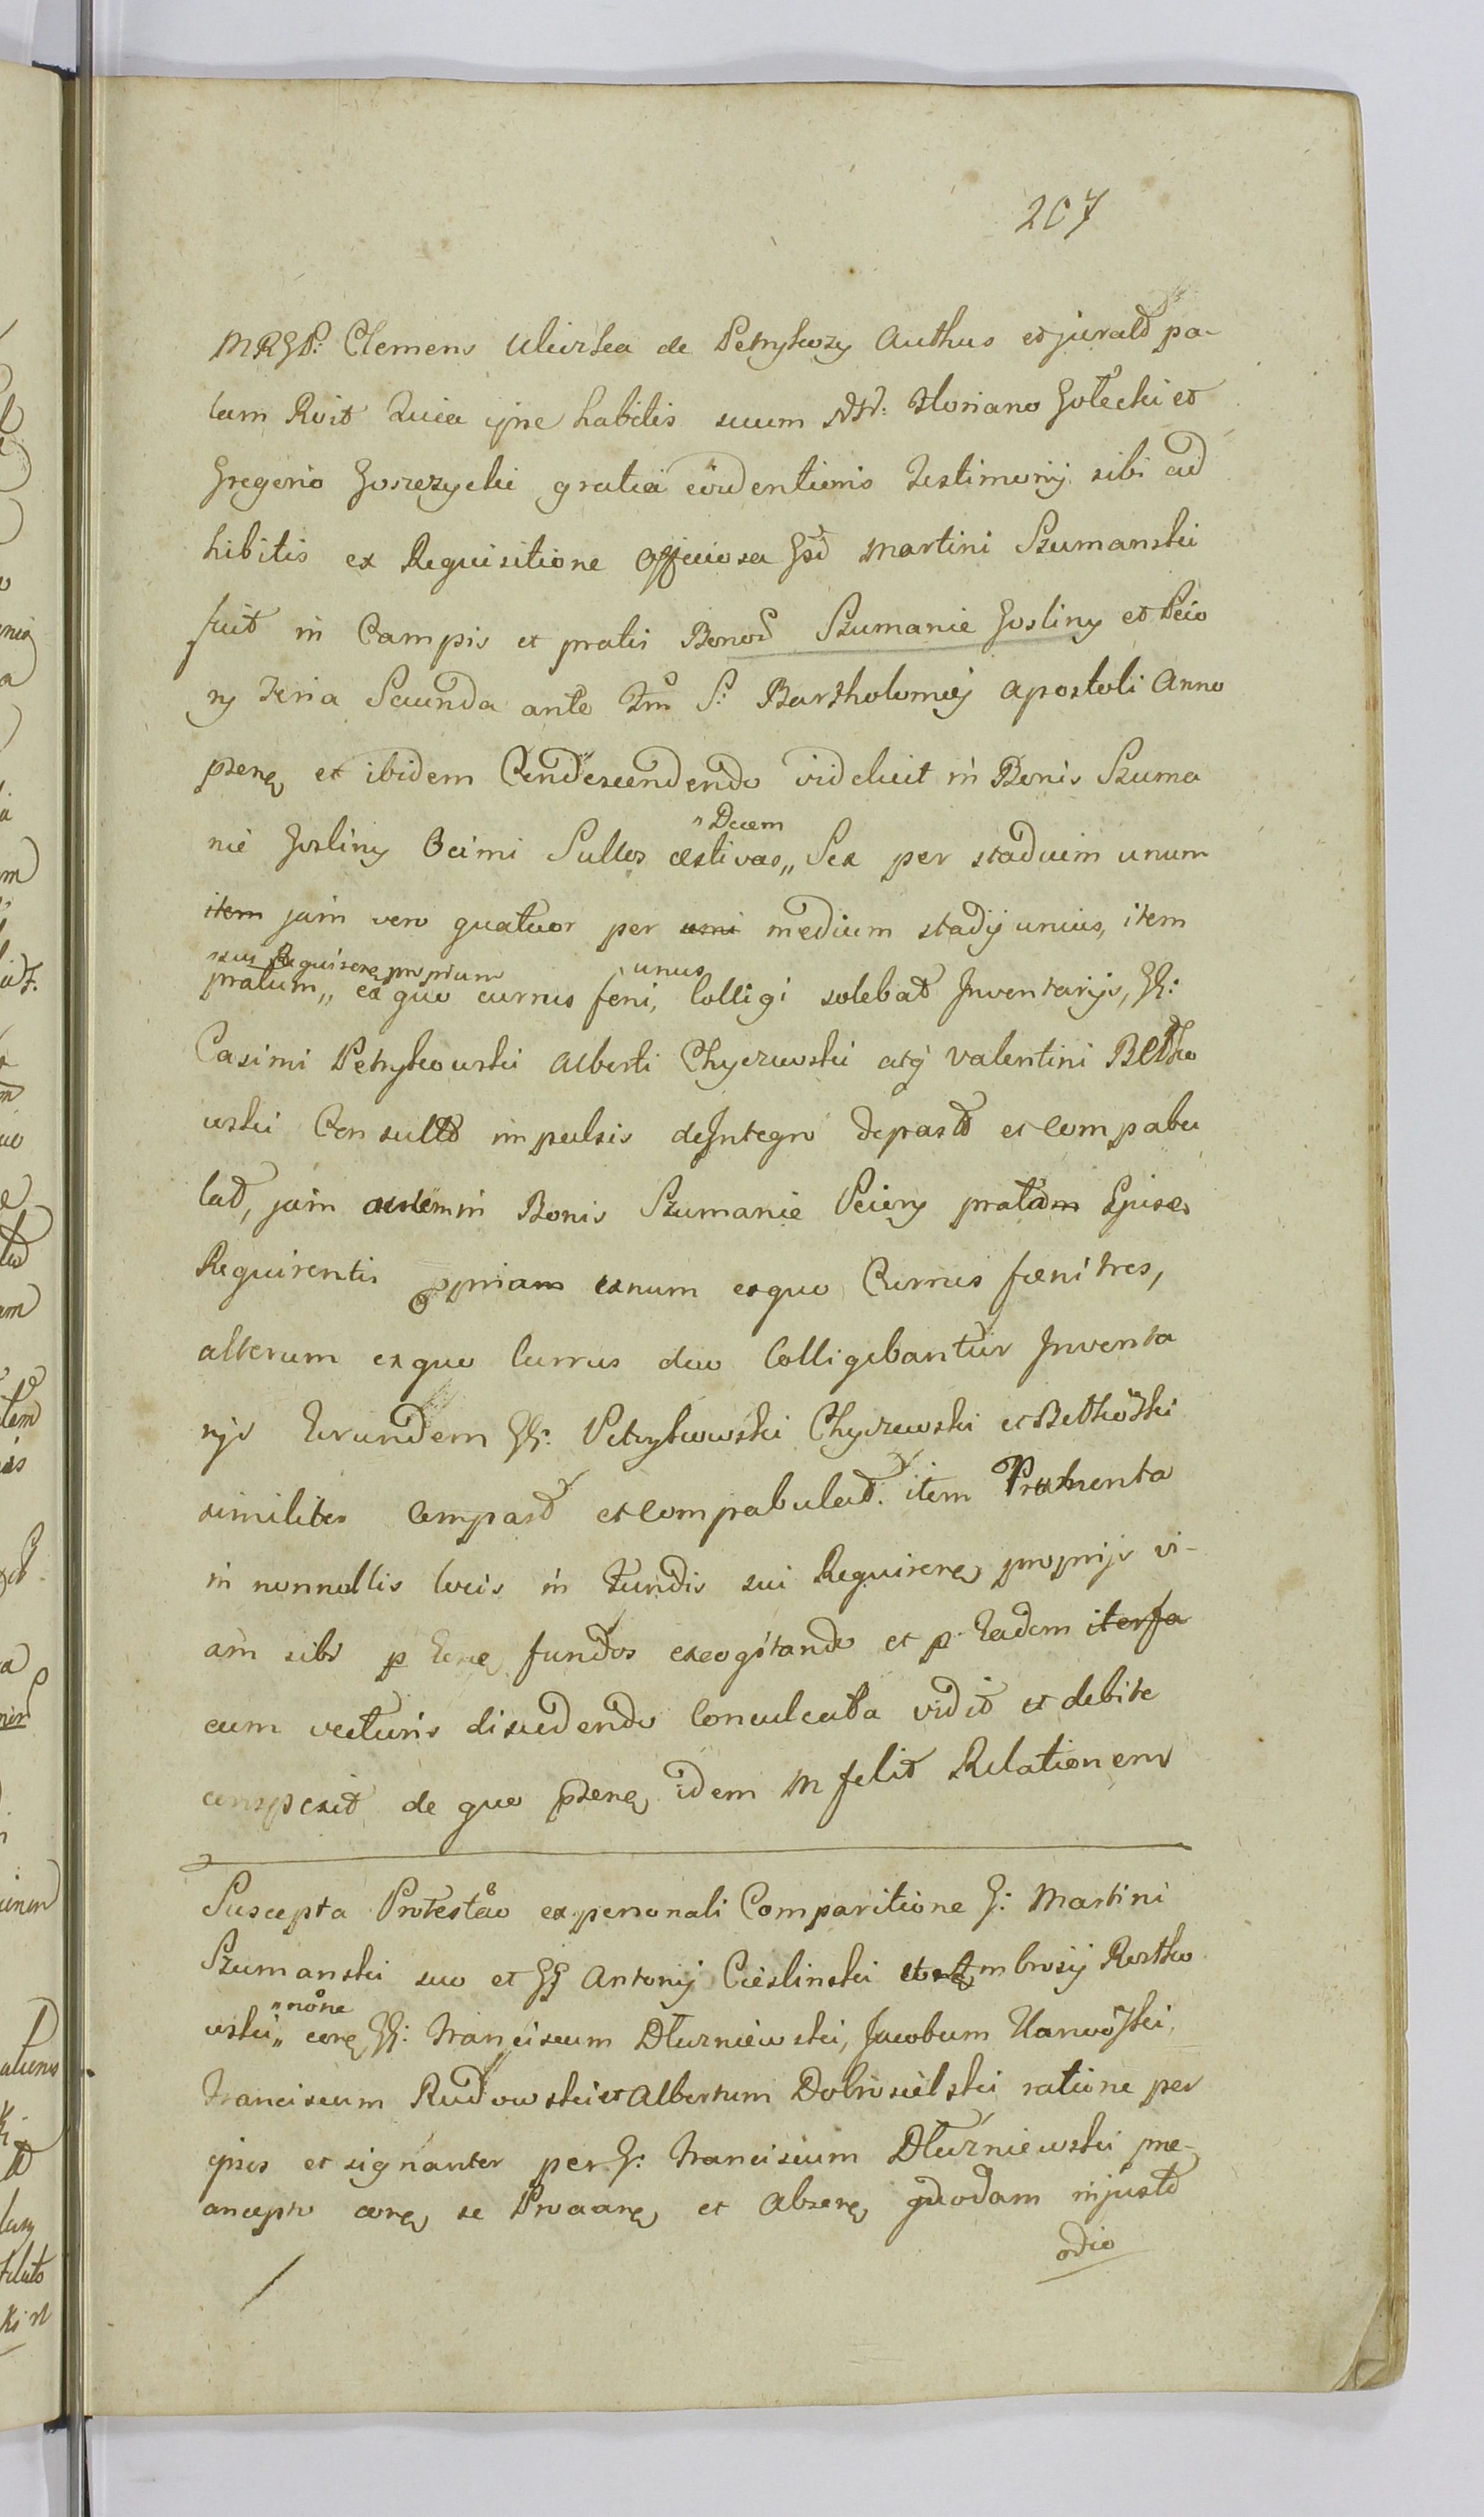 207
MRGD: Clemens Uliwska de Petrykozy Authus et jurato pa-
lam Roit Quia ipse habitis secum NN: Floriano Gołecki et
Gregorio Goszczycki gratia evidentioris Testimonij sibi ad
hibitis ex Requisitione Officiosa Gsi Martini Szumanski
fuit in Campis et pratis Bonor Szumanie Gosliny et Pejo
ry Feria Secunda ante Fm S: Bartholomej Apostoli Anno
psenę et ibidem Condescendendo videlicet in Bonis Szuma
"Decem
nie Josliny Ocimi Sulcos æstivas,, Sex per stadium unum
item jam vero quatuor per uni medium stadij unius, item
sui Requirenę proprium unus
pratum,, ex quo currus feni, Colligi solebat Inventarijs, GG:
Casimi Petrykowski Alberti Chyczewski atq Valentini Betko
wski Consulto impulsis deIntegro depasto et Compabu
lato, jam autem in Bonis Szumanie Peiory pratam Ejusdem
Requirentis propriam unum ex quo Currus fœni tres,
alterum ex quo Currus duo Colligebantur Inventa
rijs Eorundem GG: Petrykowski Chyczewski et Betkowski
similiter Compasto et Compabulato. item Frumenta
in nonnullis locis in Fundis sui Requirenę proprijs vi-
am sibi p Eosdem fundos excogitando et p Eadem iter fa
cum vecturis discedendo Conculcata vidit et debite
conspexit de quo psenę idem M felit Relationem
Suscepta Protestao ex personali Comparitione G: Martini
Szumanski suo et GG Antonij Cieslinski et Ambrosij Rostko
"noïne
wski,, corą GG: Franciscum Dłuzniewski, Jacobum Karwoski,
Franciscum Rudowski et Albertum Dobrosielski ratione per
ipsos et signanter per G: Franciscum Dłużniewski præ-
concepto corą se Provocarę et Absenę quodam injusto
odio